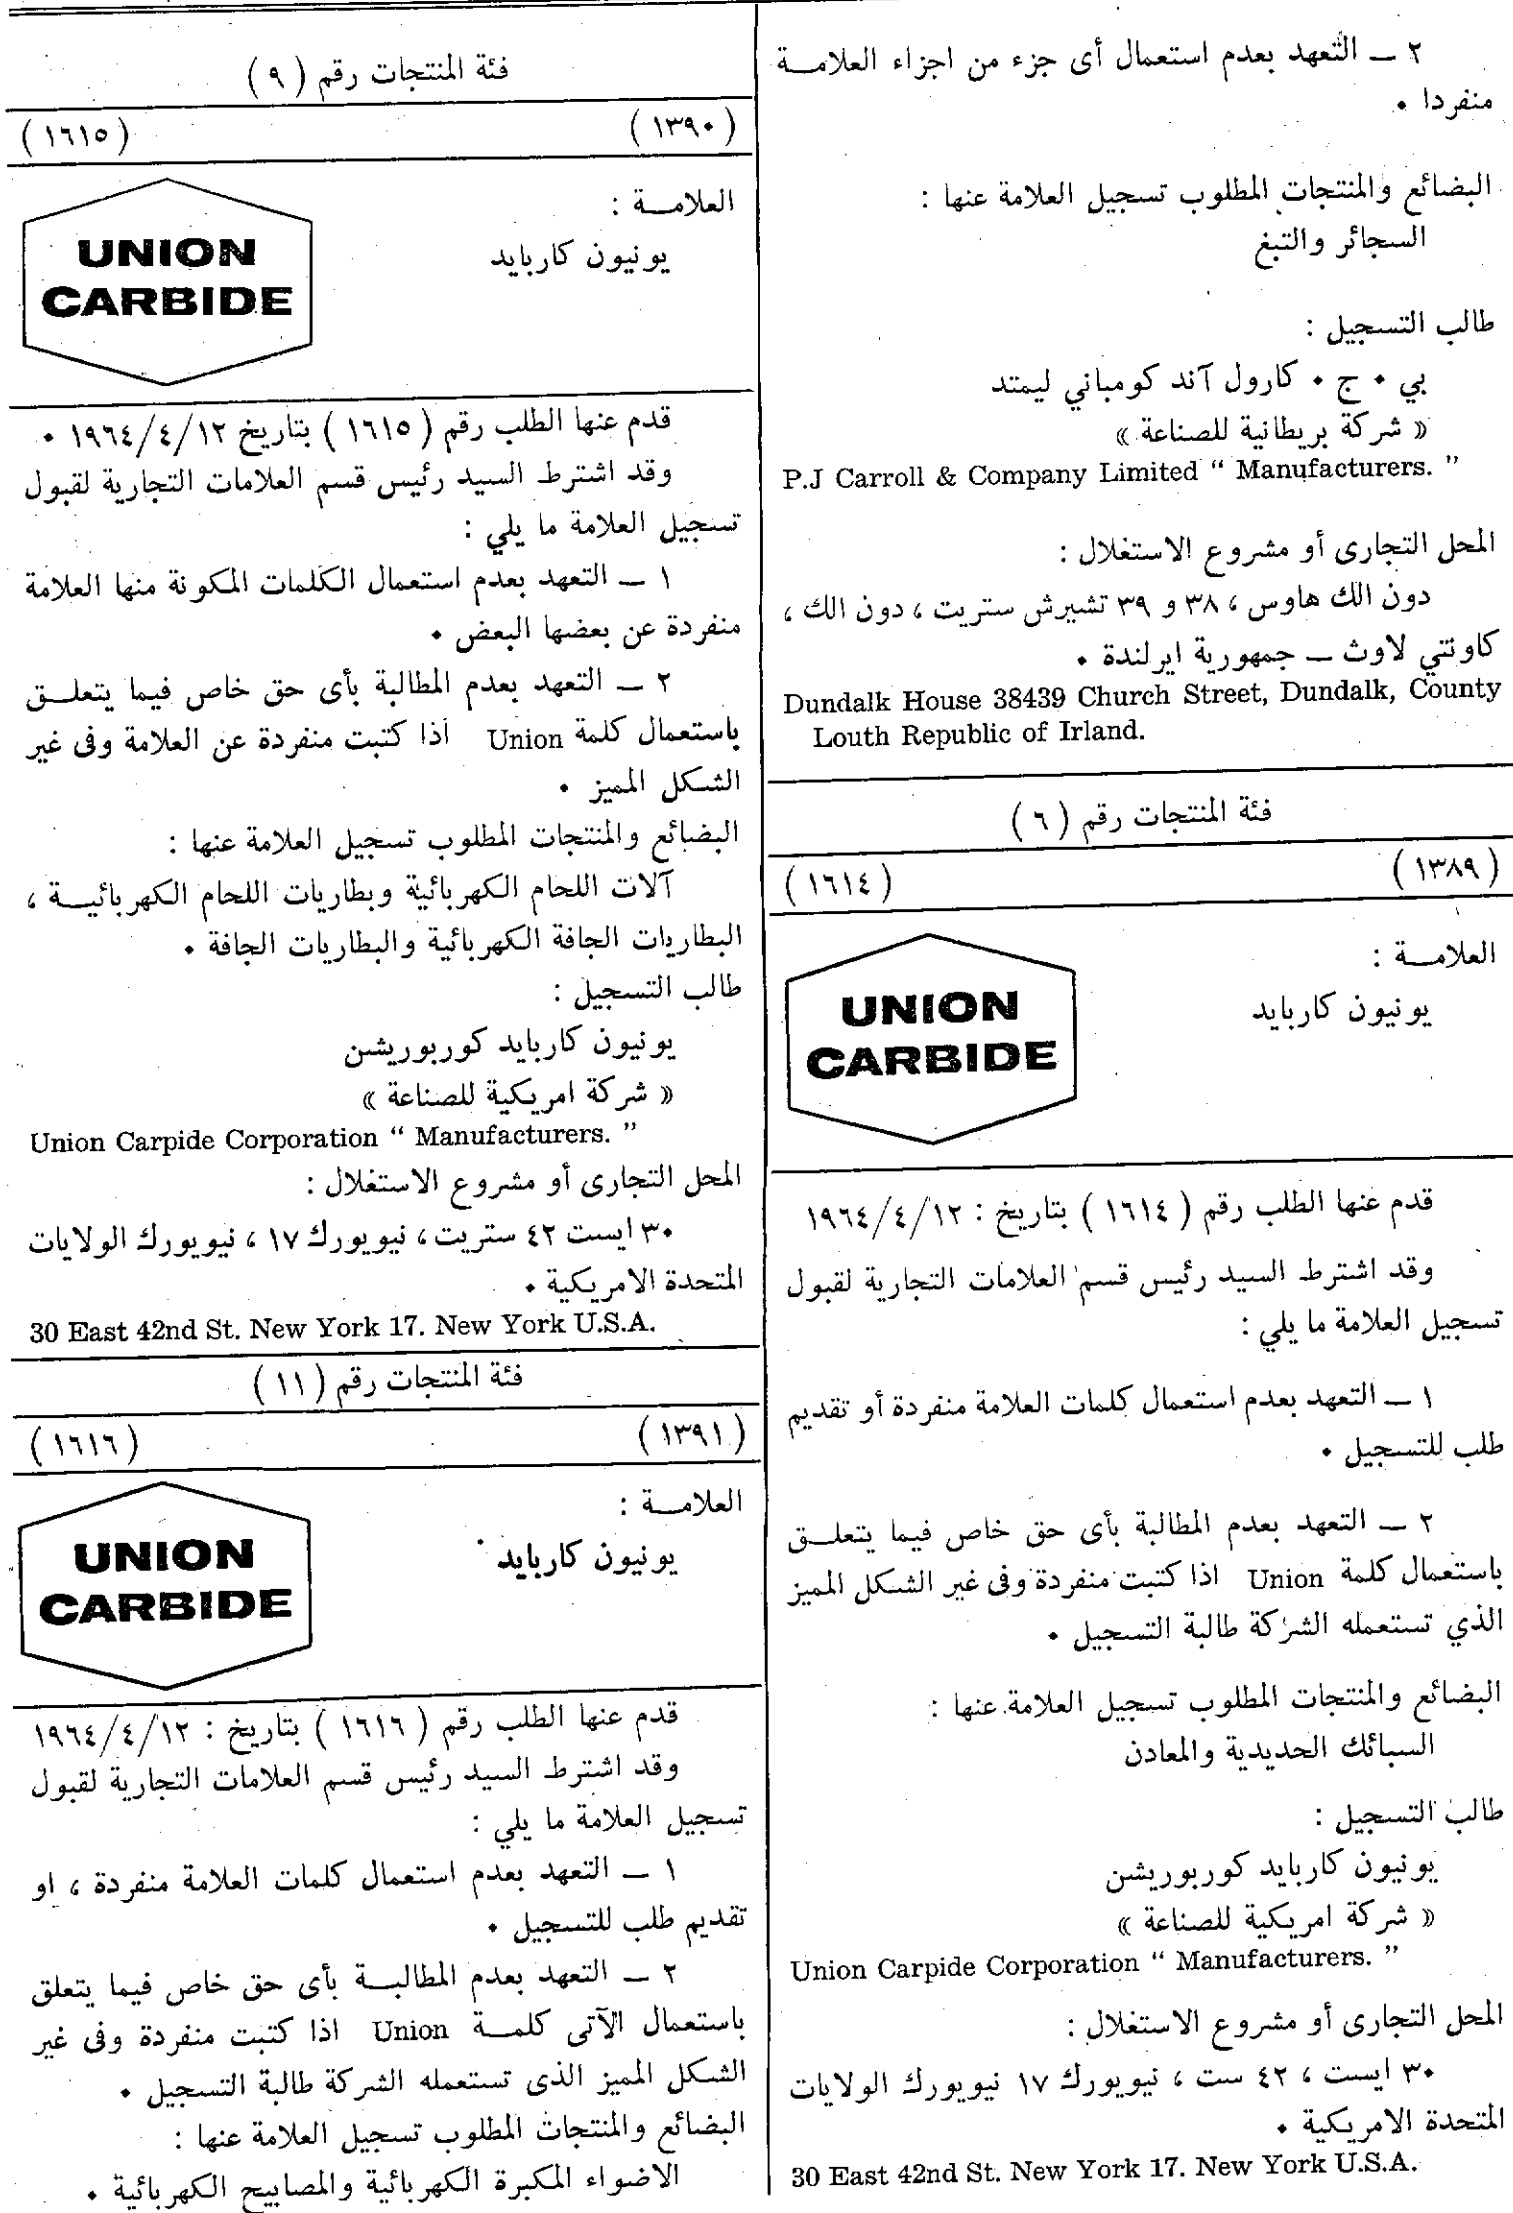 ٢ ــ التعهد بعدم استعمال أى جزء من اجزاء العلامــة
منفردا ٠
البضائع والمنتجات المطلوب تسجيل العلامة عنها :
السجائر والتبغ
طالب التسجيل :
بي ٠ ج ٠ كارول آند كومباني ليمتد
« شركة بريطانية للصناعة »
P.J Carroll & Company Limited “ Manufacturers. ”
المحل التجارى أو مشروع الاستغلال :
دون الك هاوس ، ٣٨ و ٣٩ تشيرش ستريت ، دون الك ،
كاونتي لاوث ــ جمهورية ايرلندة ٠
Dundalk House 38439 Church Street, Dundalk, County
Louth Republic of Irland.
فئة المنتجات رقم ( ٦ )
( ١٣٨٩ ) ( ١٦١٤ )
العلامــة :
يونيون كاربايد
UNION
CARBIDE
قدم عنها الطلب رقم ( ١٦١٤ ) بتاريخ : ١٩٦٤/٤/١٢
وقد اشترط السيد رئيس قسم العلامات التجارية لقبول
تسجيل العلامة ما يلي :
١ ــ التعهد بعدم استعمال كلمات العلامة منفردة أو تقديم
طلب للتسجيل ٠
٢ ــ التعهد بعدم المطالبة بأى حق خاص فيما يتعلــق
باستعمال كلمة Union اذا كتبت منفردة وفى غير الشكل المميز
الذي تستعمله الشركة طالبة التسجيل ٠
البضائع والمنتجات المطلوب تسجيل العلامة عنها :
السبائك الحديدية والمعادن
طالب التسجيل :
يونيون كاربايد كوربوريشن
« شركة امريكية للصناعة »
Union Carpide Corporation “ Manufacturers. ”
المحل التجارى أو مشروع الاستغلال :
٣٠ ايست ، ٤٢ ست ، نيويورك ١٧ نيويورك الولايات
المتحدة الامريكية ٠
30 East 42nd St. New York 17. New York U.S.A.
فئة المنتجات رقم ( ٩ )
( ١٣٩٠ ) ( ١٦١٥ )
العلامــة :
يونيون كاربايد
UNION
CARBIDE
قدم عنها الطلب رقم ( ١٦١٥ ) بتاريخ ١٩٦٤/٤/١٢ ٠
وقد اشترط السيد رئيس قسم العلامات التجارية لقبول
تسجيل العلامة ما يلي :
١ ــ التعهد بعدم استعمال الكلمات المكونة منها العلامة
منفردة عن بعضها البعض ٠
٢ ــ التعهد بعدم المطالبة بأى حق خاص فيما يتعلــق
باستعمال كلمة Union اذا كتبت منفردة عن العلامة وفى غير
الشكل المميز ٠
البضائع والمنتجات المطلوب تسجيل العلامة عنها :
آلات اللحام الكهربائية وبطاريات اللحام الكهربائيــة ،
البطاريات الجافة الكهربائية والبطاريات الجافة ٠
طالب التسجيل :
يونيون كاربايد كوربوريشن
« شركة امريكية للصناعة »
Union Carpide Corporation “ Manufacturers. ”
المحل التجارى أو مشروع الاستغلال :
٣٠ ايست ٤٢ ستريت ، نيويورك ١٧ ، نيويورك الولايات
المتحدة الامريكية ٠
30 East 42nd St. New York 17. New York U.S.A.
فئة المنتجات رقم ( ١١ )
( ١٣٩١ ) ( ١٦١٦ )
العلامــة :
يونيون كاربايد
UNION
CARBIDE
قدم عنها الطلب رقم ( ١٦١٦ ) بتاريخ : ١٩٦٤/٤/١٢
وقد اشترط السيد رئيس قسم العلامات التجارية لقبول
تسجيل العلامة ما يلي :
١ ــ التعهد بعدم استعمال كلمات العلامة منفردة ، او
تقديم طلب للتسجيل ٠
٢ ــ التعهد بعدم المطالبــة بأى حق خاص فيما يتعلق
باستعمال الآتى كلمــة Union اذا كتبت منفردة وفى غير
الشكل المميز الذى تستعمله الشركة طالبة التسجيل ٠
البضائع والمنتجات المطلوب تسجيل العلامة عنها :
الاضواء المكبرة الكهربائية والمصابيح الكهربائية ٠